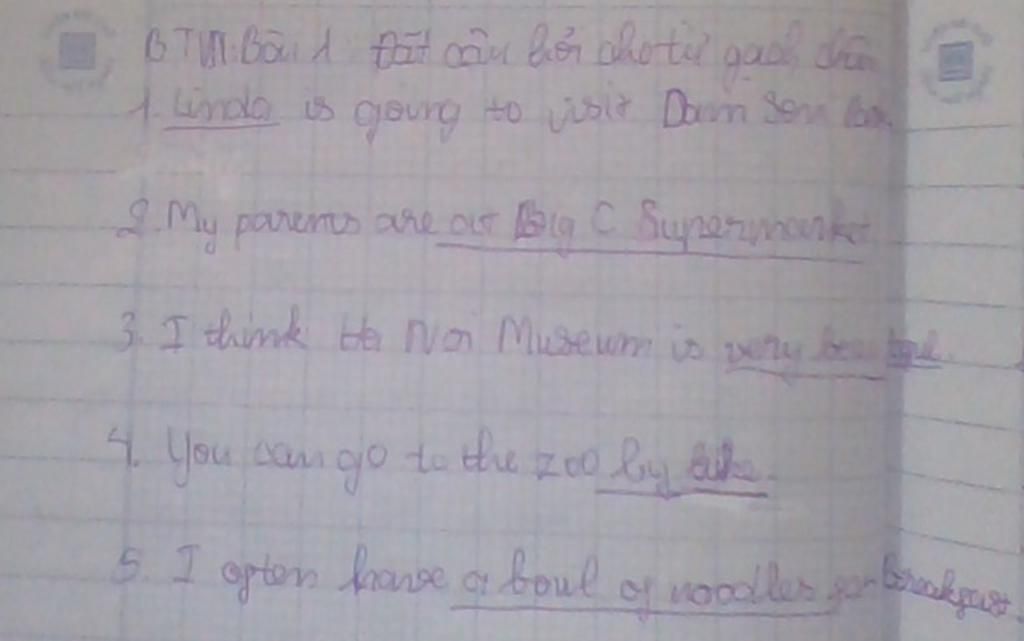 BTVN: Bài 1 Đặt câu hỏi cho từ gạch chân
1. Linda is going to visit Dam Sen
2. My parents are at Big C Supermarket
3. I think Ha Noi Museum is very beautiful.
4. You can go to the zoo by
5. I often have a boul of noodles for breakfast.